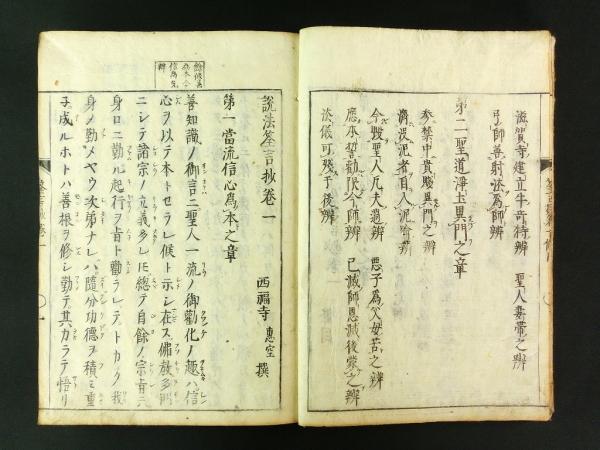 滋賀寺建立牛奇特辨　聖人妻帶之辨
弓師善射法爲師辨
第二聖道淨土異門之章
參禁中貴賤異門之辨
濟没泥者自入泥喩辨
今毀聖人凡夫過辨　惡子爲父母苦之辨
應本誓勸
今師辨　已滅師恩滅後蒙之辨
法儀可殘于後辨
餘修
信爲先
辨
說法筌言抄卷一
西福寺　惠空　撰
第一當流信心爲本之章
善知識ノ御言ニ聖人一流ノ御勸化ノ趣ハ信
心ヲ以テ本トセラレ候ト示シ在ス佛敎多門
ニシテ諸宗ノ立義多レ𪜈總テ自餘ノ宗旨ニハ
身口ニ勤ル起行ヲ肯ト勸ラレテトカク我
身ノ勤メヤウ次第ナレハ隨分功德ヲ積ミ重
子成ルホトハ善根ヲ修シ勤テ其カラテ悟リ